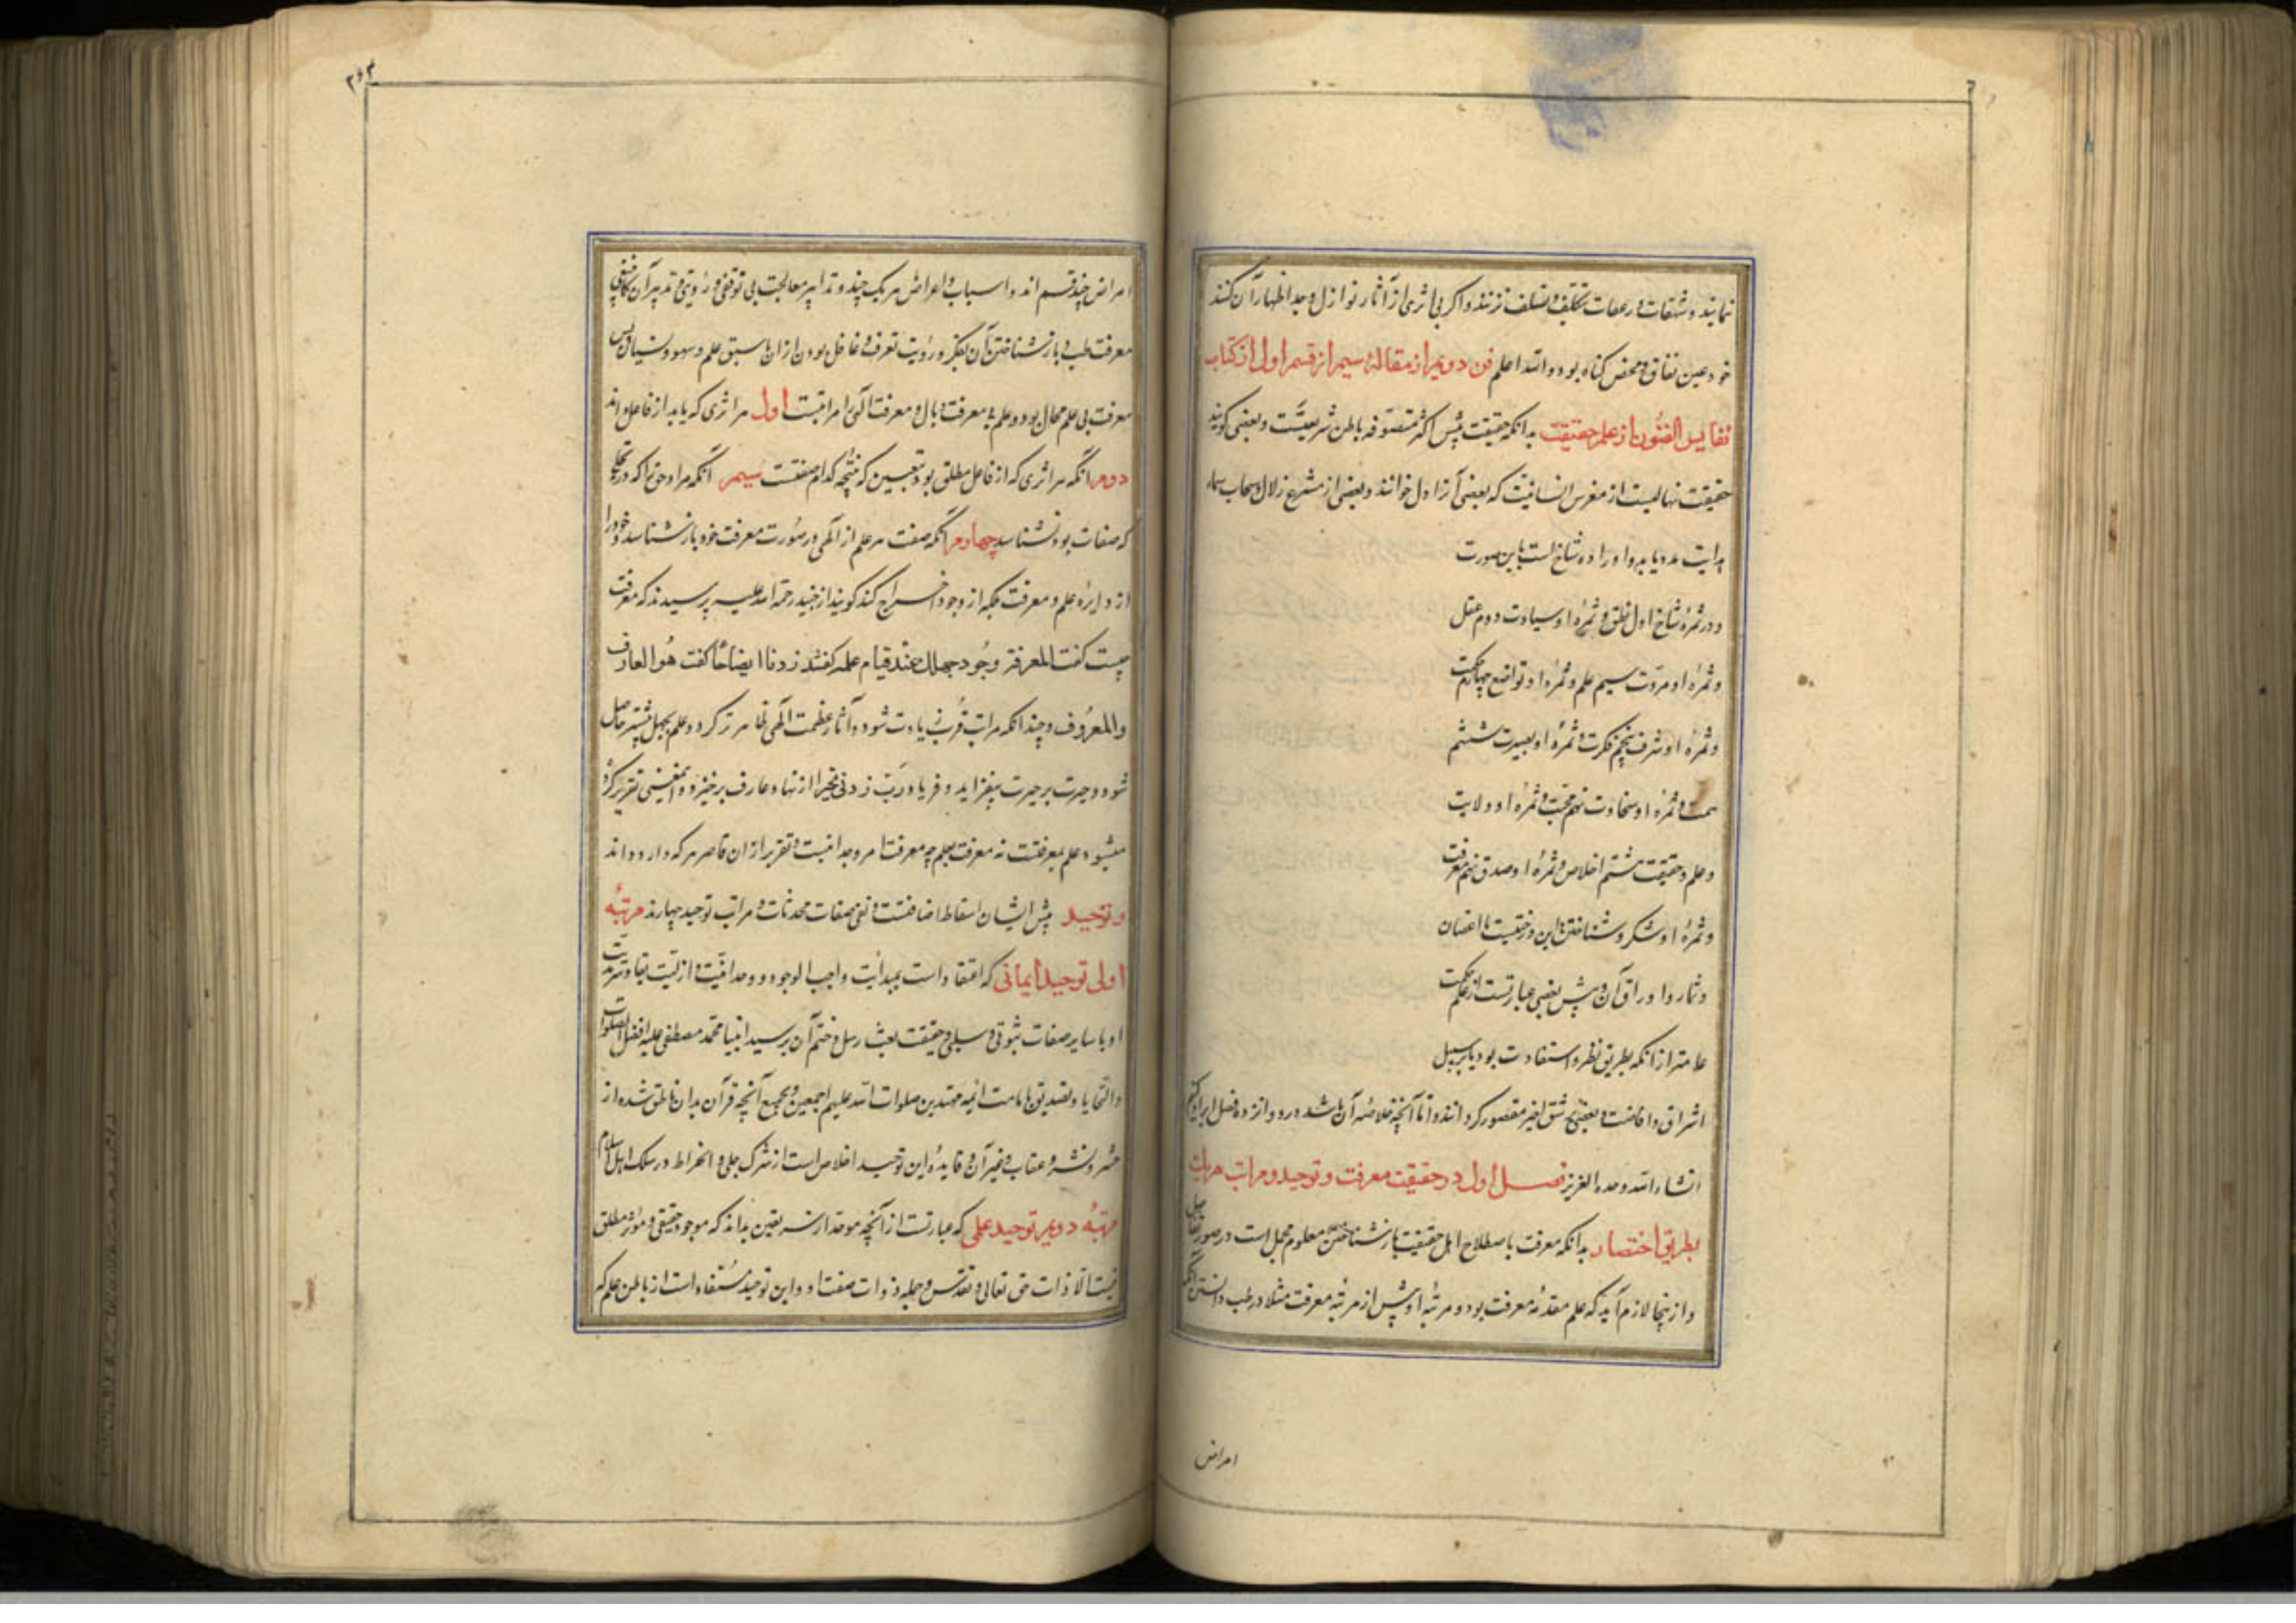 نمایند و شهقات و زعقات بتکلیف و تسلف نزنند و اکر بی اثری از آثار نوازل وجد اظهار آن کنند
خود عین نفاق و محض کناه بود والله اعلم فن دویم از مقالهٔ سیم از قسم اول از کتاب
نفایس الفنون از علم حقیقت بدانکه حقیقت پیش اکثر متصوفه باطن شریعتست و بعضی کویند
حقیقت نهالیست از مغرس انسانیت که بعضی آنرا دل خوانند و بعضی از مشرع زلال و سحاب سماء
هدایت مدد یابد و او را ده شاخ است باین صورت
و در ثمرهٔ شاخ اول نطق و ثمرهٔ او سیادت دوم عقل
و ثمرهٔ او مروّت سیم علم و ثمرهٔ او تواضع چهارم حکمت
و ثمرهٔ او شرف پنجم فکرت و ثمرهٔ او بصیرت ششم
همت و ثمرهٔ او سخاوت محبت و ثمرهٔ او ولایت
و علم و حقیقت هشتم اخلاص و ثمرهٔ او صدق نهم معرفت
و ثمرهٔ او شکر و شناختن این درختیست با اغصان
و ثمار و اوراق آن و پیش بعضی عبارتست از علم حکمت
عامتر از انکه بطریق نظر و استفادت بود یا بر سبیل
اشراق و افاضت و بعضی بشق اخیر مقصور کردانند و اما آنچه خلاصهٔ آن باشد درو دوازده فصل ایراد کنیم
انشاء الله وحده العزیز فصل اول در حقیقت معرفت و توحید و مراتب هر یک
بطریق اختصار بدانکه معرفت باصطلاح اهل حقیقت بازشناختن معلوم مجمل است در صور تفاصیل
و از ینجا لازم آید که علم مقدمهٔ معرفت بود و مرتبهٔ او پیش از مرتبهٔ معرفت مثلا در طب دانستن آنکه
امراض
۳۶۳
امراض چند قسم اند و اسباب و اعراض هر یک چند و تدابیر معالجت بی توقفی و رؤیتی و تدبیر آن
معرفت طب و بازشناختن آن بفکر و رؤیت تعرف و غافل بودن ازان با سبق علم و سهو و نسیان پس
معرفت بی علم محال بود و علم بی معرفت وبال و معرفت الهی را مراتبست اول هر اثری که یابد از فاعل داند
دوم انکه هر اثری که از فاعل مطلق بود بتعیین که نتیجه کدام صفتست سیم آنکه مراد حق را که در تجلی
که صفات بود بشناسد چهارم انکه صفت هر علم از الهی در صورت معرفت خود بازشناسد و خود را
از دایره علم و معرفت بلکه از وجود اخراج کند کویند از جنید رحمة الله علیه پرسیدند که معرفت
چیست کفت المعرفة وجود جهلک عند قیام علمه کفتند زدنا ایضاحا کفت هو العارف
والمعروف و چندانکه مراتب قرب زیادت شود و آثار عظمت الهی ظاهرتر کردد علم بجهل بیشتر حاصل
شود و حیرت بر حیرت بیفزاید و فریاد رب زدنی تحیرا از نهاد عارف برخیزد و این معنی تقریر کرده
میشود علم بمعرفتست نه معرفت بعلم چه معرفت امر وجدانیست و تقریر ازان قاصر هر که دارد داند
و توحید پیش ایشان اسقاط اضافتست و نفی صفات محدثات و مراتب توحید چهارند مرتبهٔ
اولی توحید ایمانی که اعتقاد است بمبدائیت واجب الوجود و وحدانیت و ازلیت بقا و سرمدیت
او با سایر صفات ثبوتی و سلبی و حقیقت بعثت رسل و ختم آن بر سید انبیا محمد مصطفی علیه افضل الصلوات
والتحایا و تصدیق بامامت ائمه مهتدین صلوات الله علیهم اجمعین و بجمیع آنچه قرآن بدان ناطق شده از
حشر و نشر و عقاب و غیر آن و فایدهٔ این توحید اخلاص است از شرک جلی و انخراط در سلک اهل اسلام
مرتبهٔ دویم توحید علمی که عبارتست از آنچه موحد از سر یقین بداند که موجود حقیقی و مؤثر مطلق
نیست الا ذات حق تعالی و تقدس و جمله ذوات صفت او و این توحید مستفاد است از باطن علم که